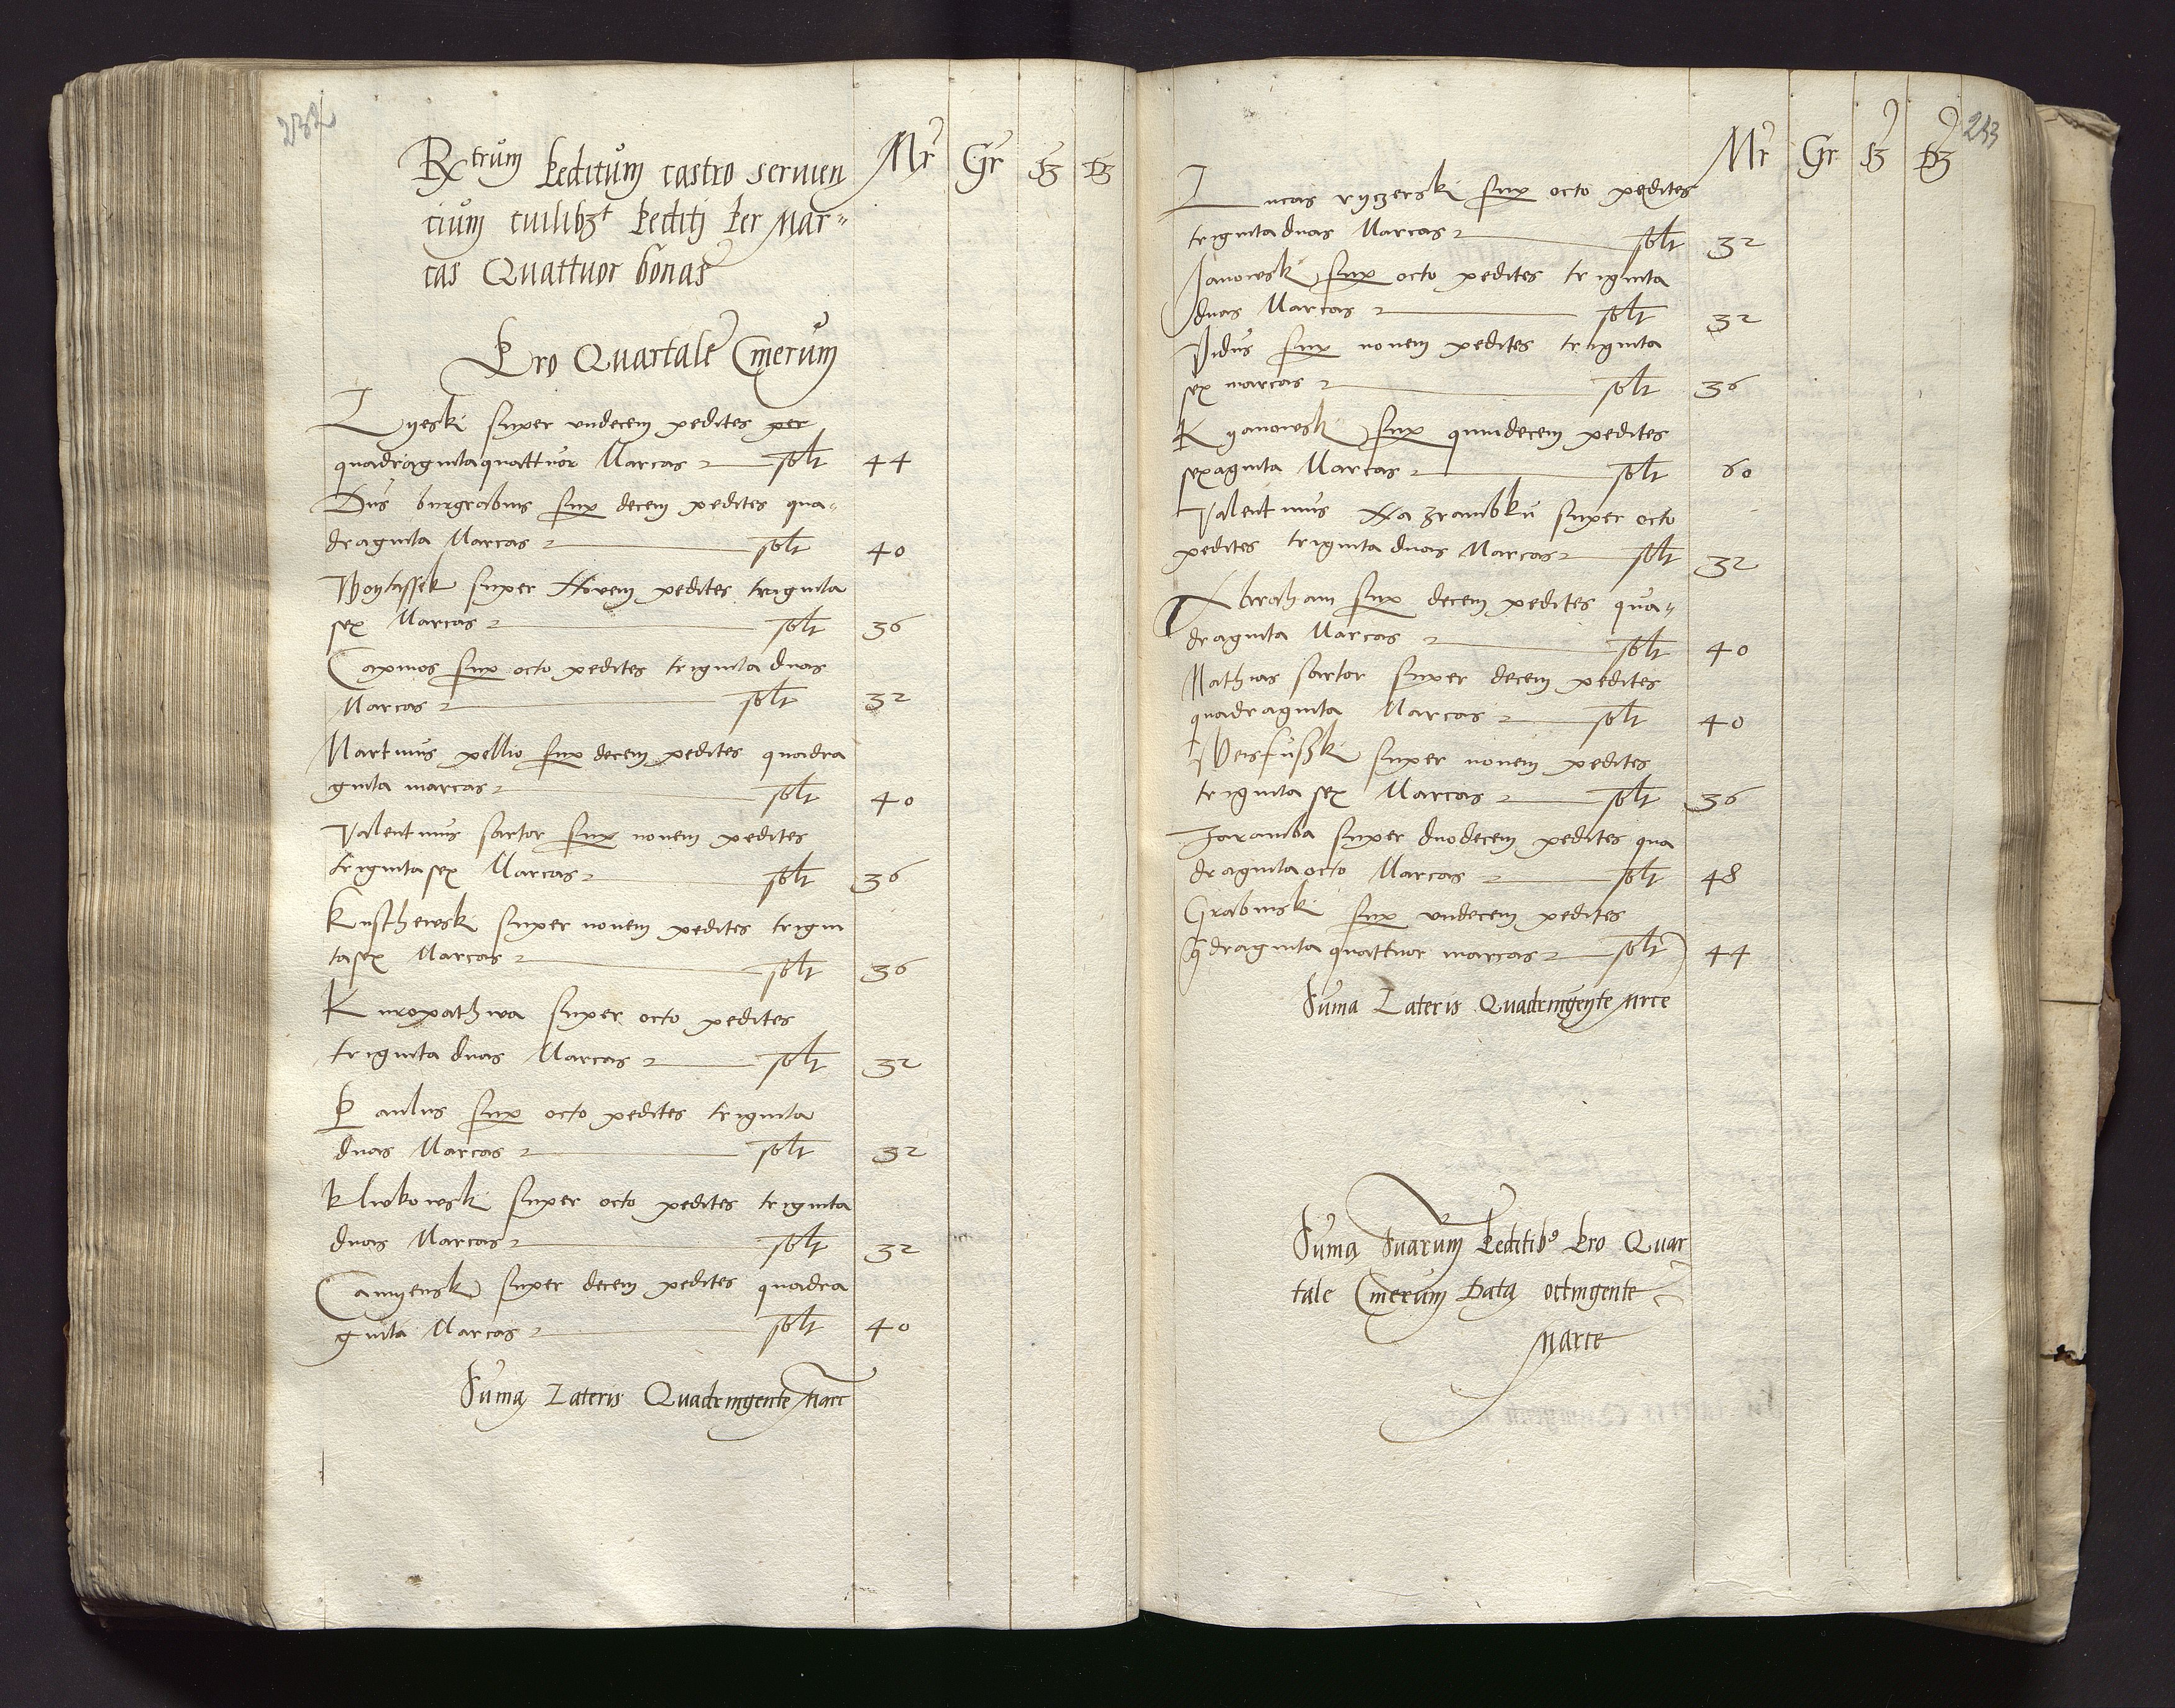 232
Mr Gr ß
Rxtrum peditum castro seruien
cium cuilibzt pediti per Mar=
cas Quattuor bonas
Pro Quartale Cinerum
Lyeski super vndecem pedites per
quadragintaquattuor Marcas solt 44
Dns burgrabius sup decem pedites qua=
draginta Marcas solt 40
Woytassek super Novem pedites triginta
sex Marcas solt 36
Caxmos sup octo pedites triginta duas
Marcas solt 32
Martinus pellio sup decem pedites quadra
ginta marcas solt 40
Valentinus sartor sup novem pedites
trigintasex Marcas solt 36
Kusthewski super novem pedites trigin
tasex Marcas solt 36
Kuropathwa super octo pedites
triginta duas Marcas solt 32
Paulus sup octo pedites triginta
duas Marcas solt 32
Klwkowski super octo pedites triginta
duas Marcas solt 32
Camyenski super decem pedites quadra
ginta Marcas solt 40
Suma Lateris Quadringente Marc
233
Mr Gr ß
Lucas ryczerski sup octo pedites
trigintaduas Marcas solt 32
Janowski sup octo pedites triginta
duas Marcas solt 32
Vidus sup novem pedites triginta
sex marcas solt 36
Kyanowski sup quindecem pedites
sexaginta Marcas solt 60
Valentinus Nazrambku super octo
pedites triginta duas Marcas solt 32
Abraham sup decem pedites qua=
draginta Marcas solt 40
Mathias sartor super decem pedites
quadraginta Marcas solt 40
Weisfußki super novem pedites
triginta sex Marcas solt 36
Zaramba super duodecem pedites qua
dragintaocto Marcas solt 48
Grabinski sup vndecem pedites
qdraginta quattuor marcas solt 44
Suma Lateris Quadringente Mrce
Suma Suarum peditibs pro Quar
tale Cinerum Data octingente
Marce